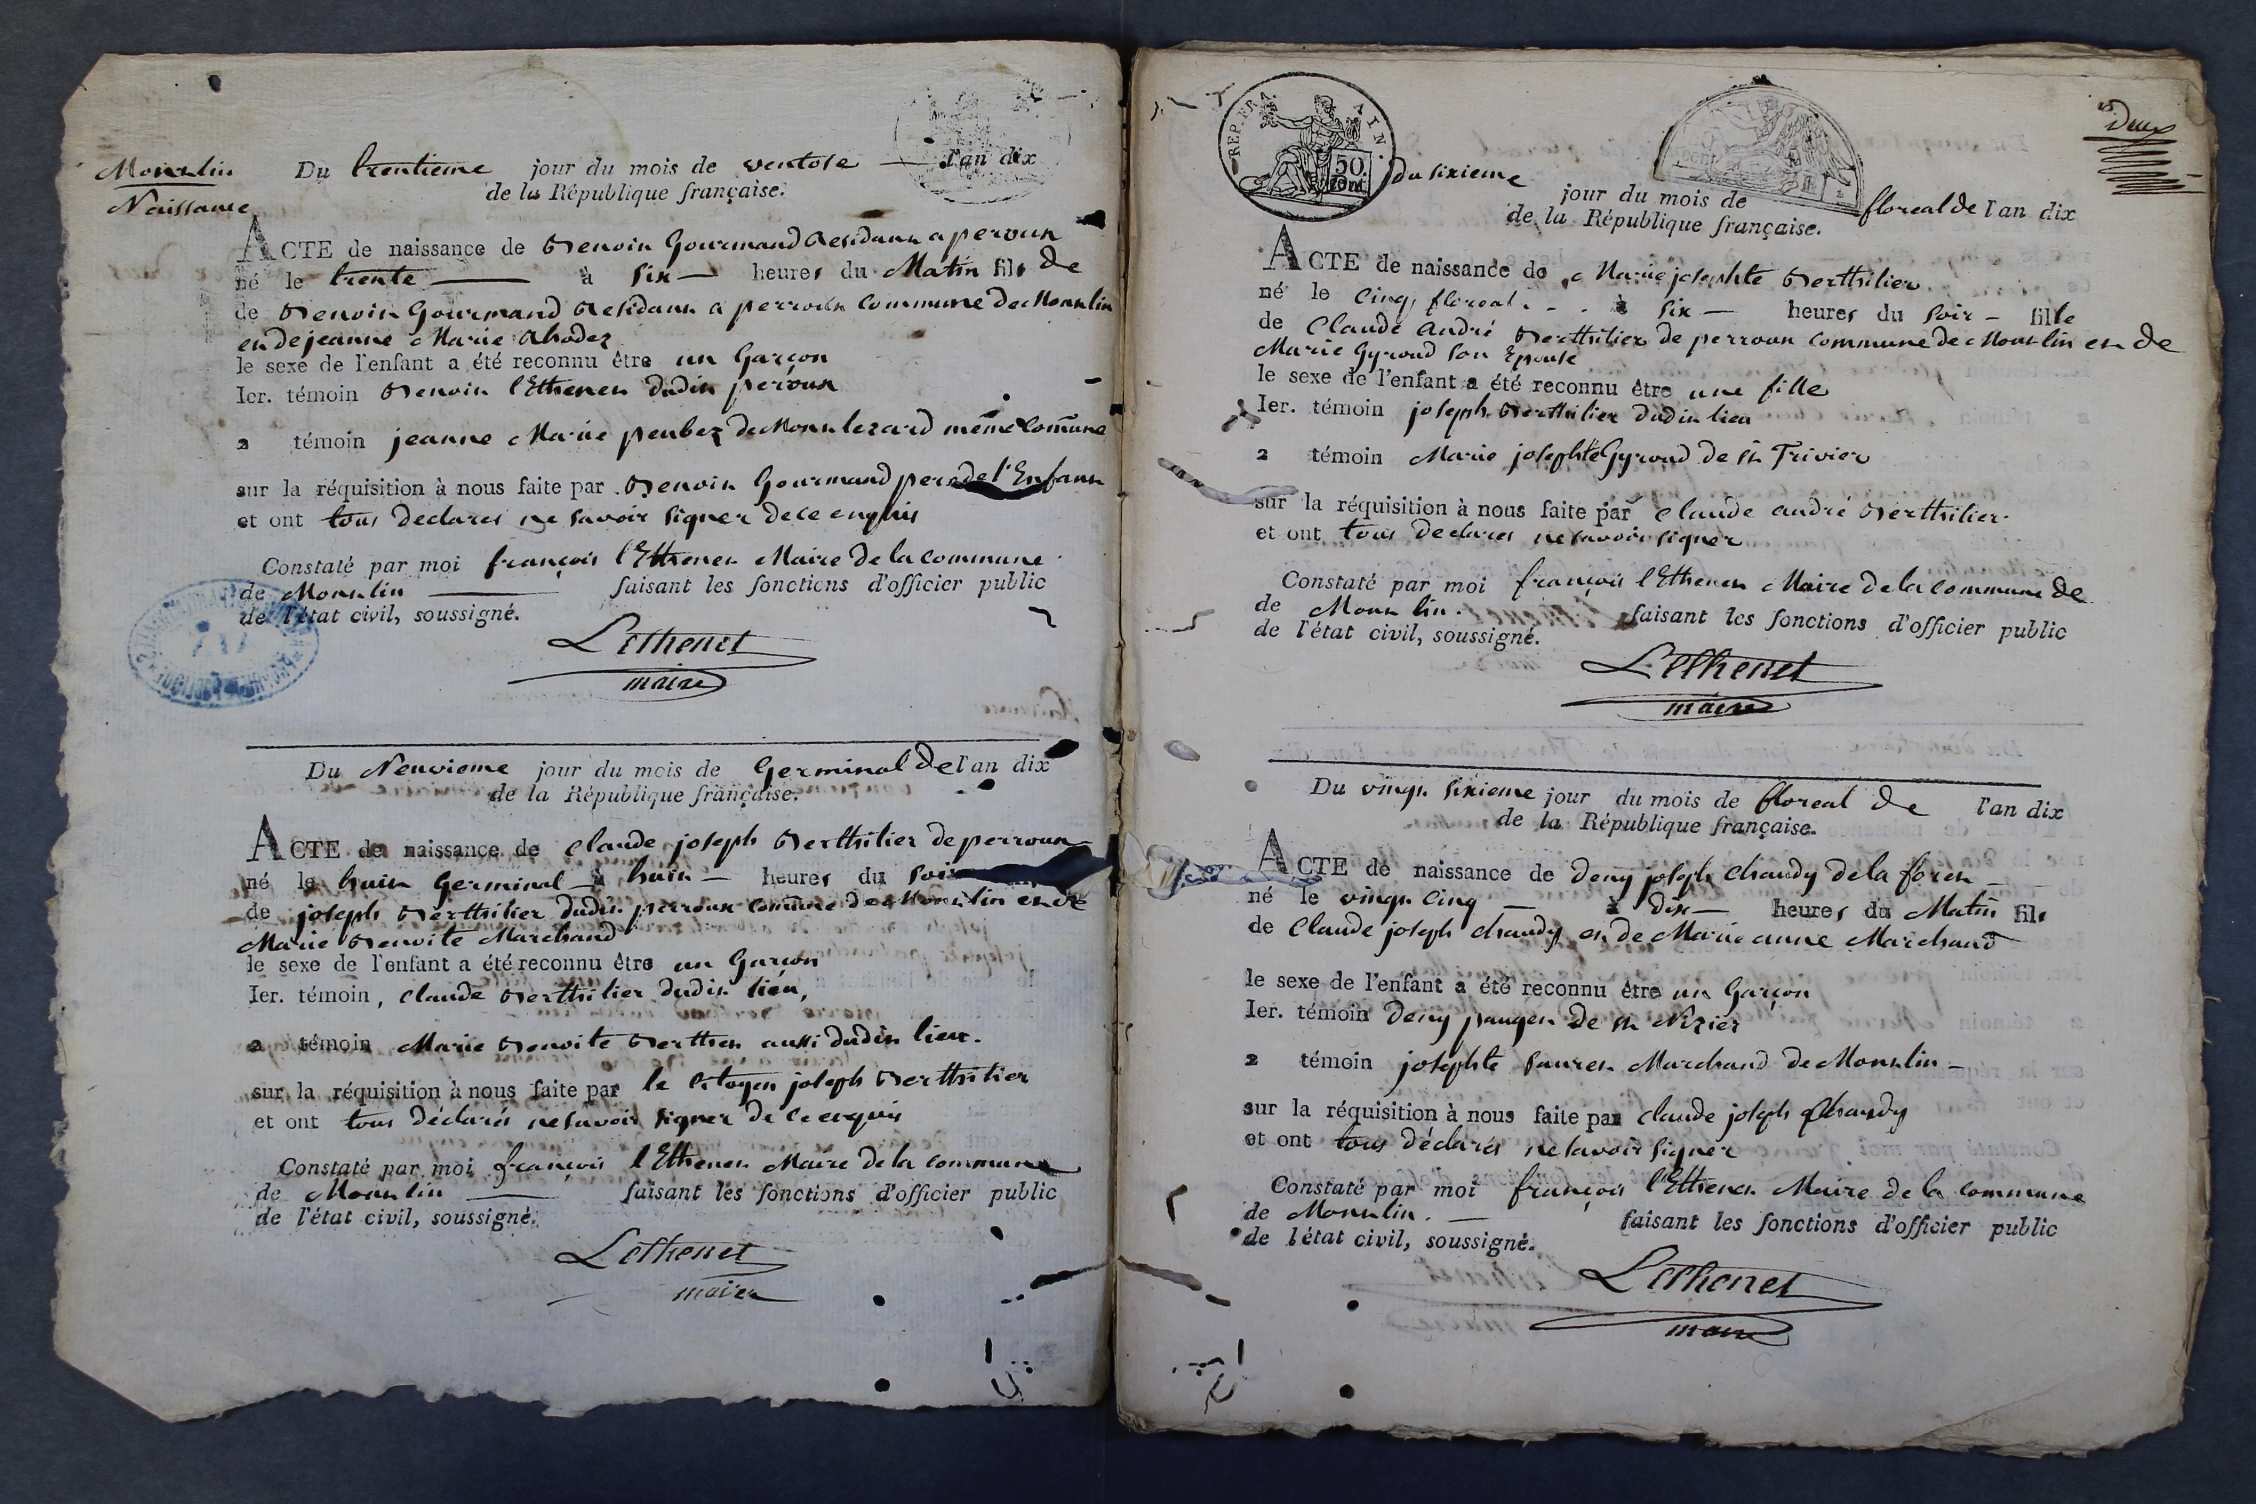 Moutlin
Naissance
Du trentieme jour du mois de ventose l'an dix
de la République française.
ACTE de naissance de Benoit Gourmand Residant a peroux
né le trente à six heures du Matin fils de
de Benoit Gourmand Residant a perroux commune de Montlin
et de jeanne Marie
le sexe de l'enfant a été reconnu être un Garçon
Ier. témoin Benoit l'Ethenet dudit peroux
2 témoin jeanne Marie peubez de même Comune
sur la réquisition à nous faite par Benoit Gourmand pere de l'Enfant
et ont tous declares ne savoir signer de ce enquis
Constaté par moi françois l'Ethenet Maire de la commune
de Montlin faisant les fonctions d'officier public
de l'état civil, soussigné.
Lethenet
maire
Du Neuvieme jour du mois de Germinal de l'an dix
de la République française.
ACTE de naissance de claude joseph Berthilier de perroux
né le huit Germinal à huit heures du soir
de joseph Berthilier dudit perroux comune de Montlin et de
Marie Benoite Marchand
le sexe de l'enfant a été reconnu être un Garçon
Ier. témoin, claude Berthilier dudit lieu,
2 témoin Marie Benoite Berthet aussi dudit lieu.
sur la réquisition à nous faite par le Citoyen joseph Berthilier
et ont tous déclarés ne savoir signer de ce enquis
Constaté par moi françois l'Ethenet Maire de la commune
de Montlin faisant les fonctions d'officier public
de l'état civil, soussigné.
Lethenet
maire
REP. FRA. AIN.
50 cent.
Deux
du sixieme jour du mois de floreal de l'an dix
de la République française.
ACTE de naissance de Marie josephte Berthilier
né le cinq floreal à six heures du soir fille
de Claude andré Berthilier de perroux commune de Montlin et de
Marie Gyroud son Epouse
le sexe de l'enfant a été reconnu être une fille
Ier. témoin joseph Berthilier dudit lieu
2 témoin Marie josephte Gyroud de st Trivier
sur la réquisition à nous faite par claude andré Berthilier
et ont tous declares ne savoir signer
Constaté par moi françois l'Ethenet Maire de la commune de
de Montlin. faisant les fonctions d'officier public
de l'état civil, soussigné.
Lethenet
maire
Du vingt sixieme jour du mois de floreal de l'an dix
de la République française.
ACTE de naissance de deny joseph chaudy de la foret
né le vingt cinq à dix heures du Matin fils
de Claude joseph chaudy et de Marie anne Marchand
le sexe de l'enfant a été reconnu être un Garçon
Ier. témoin deny pauget de st Nizier
2 témoin josephte Marchand de Montlin
sur la réquisition à nous faite par claude joseph chaudy
et ont tous déclarés ne savoir signer
Constaté par moi françois l'Ethenet Maire de la commune
de Montlin. faisant les fonctions d'officier public
de l'état civil, soussigné.
Lethenet
maire